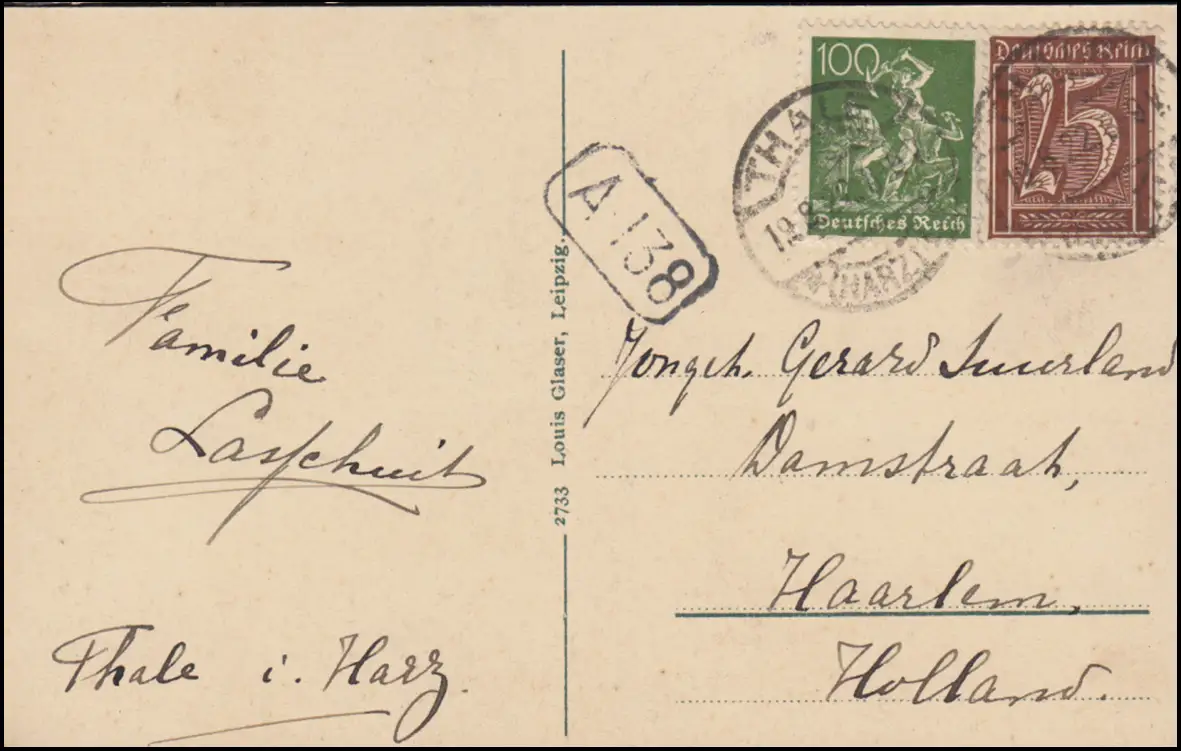 100
Deutsches Reich
Deutsches Reich
25
THALE
19.8.22
(HARZ)
A 138
Familie
Lasschuit
Thale i. Harz.
2733 Louis Glaser, Leipzig.
Jongeh. Gerard Suurland
Damstraat,
Haarlem,
Holland.